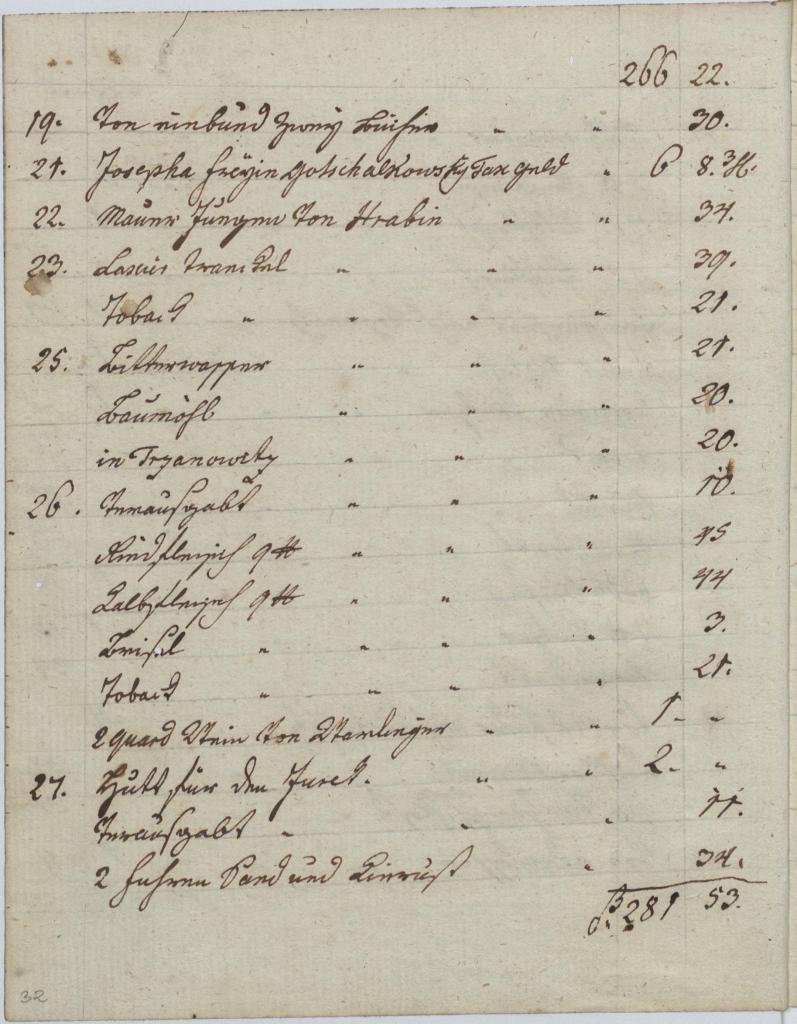 266 22.
19. Von einbund zweÿ Bücher " " 30.
21. Josepha Freÿin Gotschalkowskÿ Tax geld " 6 8. 3H.
22. Maurer Jungen Von Hrabin " " 34.
23. Laxier tranckel " " " 39.
Toback " " " " 21.
25. Bitterwasser " " " 21.
Baumöhl " " " 20.
in Trzanowitz " " " 20.
26. Verausgabt " " " 10.
Rindfleisch 9 ℔ " " " 45
Kalbfleisch 9 ℔ " " " 44
Brisel " " " " 3.
Toback " " " " 21.
2 quard Wein Von " " 1. "
27. Hutt für den Jurek. " " 2. "
Verausgabt " " " 11.
2 Fuhren Sand und " 34.
281 53.
32